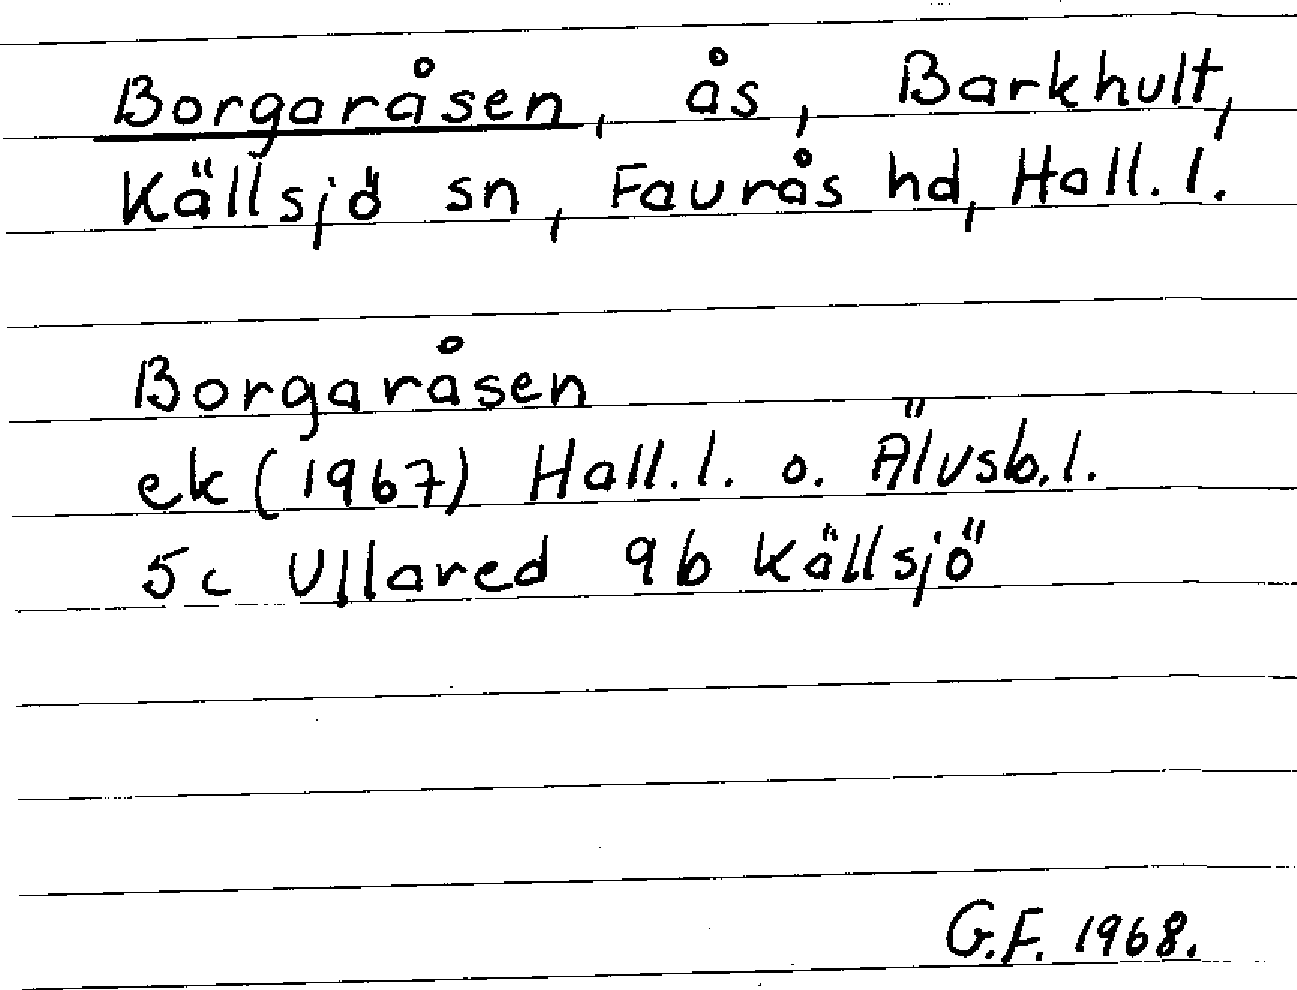 Borgaråsen, ås, Barkhult,
Källsjö sn, Faurås hd, Hall. l.
Borgaråsen
ek (1967) Hall. l. o. Älvsb. l.
5c Ullared 9b Källsjö
G.F. 1968.